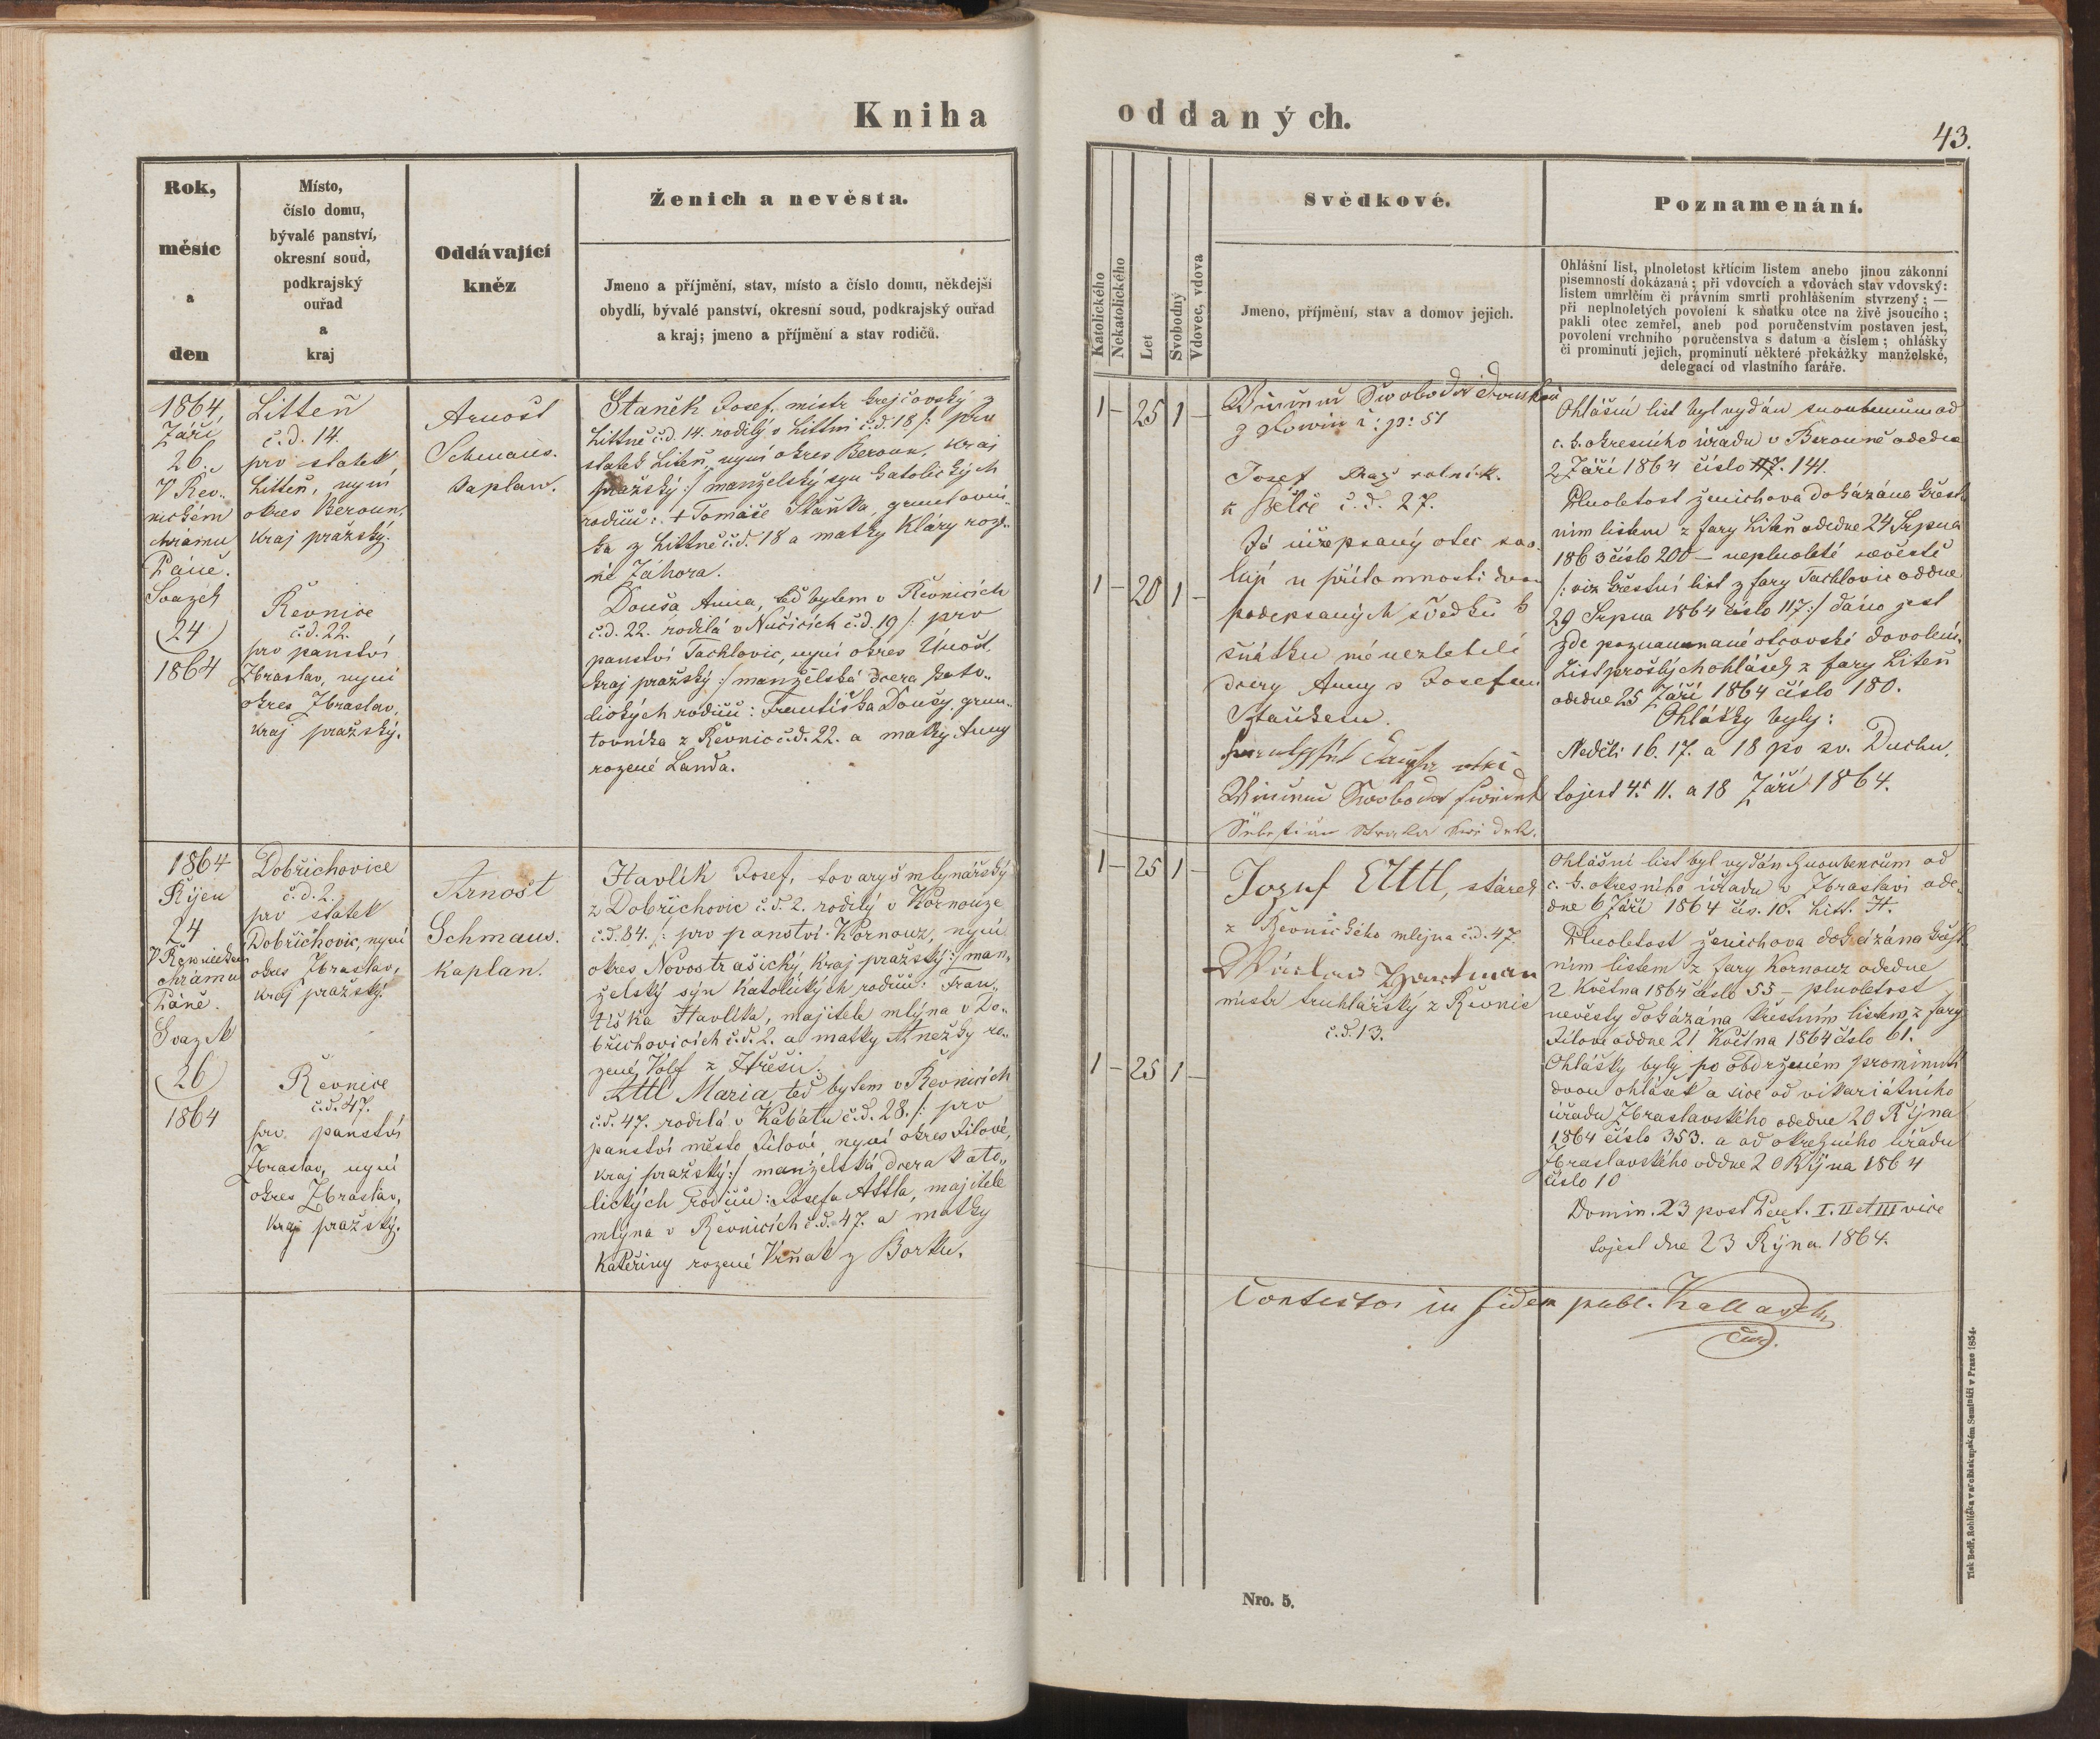 Kniha
oddaných.
43.
Rok,
měsíc
a
den
Místo,
číslo domu,
bývalé panství,
okresní soud,
podkrajský
ouřad
a
kraj
Oddávající
kněz
Ženich a nevěsta.
Jmeno a příjmění, stav, místo a číslo domu, někdejší
obydlí, bývalé panství, okresní soud, podkrajský ouřad
a kraj; jmeno a příjmění a stav rodičů.
Katolického
Nekatolického
Let
Svobodný
Vdovec, vdova
Svědkové.
Jmeno, příjmění, stav a domov jejich.
Poznamenání.
Ohlášní list, plnoletost křticím listem anebo jinou zákonní
písemností dokázaná; při vdovcích a vdovách stav vdovský:
listem umrlčím či právním smrti prohlášením stvrzený; —
při neplnoletých povolení k sňatku otce na živě jsoucího;
pakli otec zemřel, aneb pod poručenstvím postaven jest,
povolení vrchního poručenstva s datum a číslem; ohlášky
či prominutí jejich, prominutí některé překážky manželské,
delegací od vlastního faráře.
1864,
Září
26.
V Řev-
nickém
chrámu
Páně.
Svazek
24
1864
Litteň
č.d. 14.
pro statek
Litteň, nyní
okres Beroun,
kraj pražský.
Řevnice
č.d. 22.
pro panství
Zbraslav, nyní
okres Zbraslav,
kraj pražský.
Arnošt
Schmaus.
kaplan.
Staněk Josef, mistr krejčovský z
Littně č.d. 14. rodilý v Littni č.d. 18 /: pro
statek Liteň, nyní okres Beroun, kraj
pražský :/ manželský syn katolických
rodičů: † Tomáše Staňka, gruntovní-
ka z Littně č.d. 18 a matky Kláry roze-
né Záhora.
Douša Anna, teď bytem v Řevnicích
č.d. 22. rodilá v Nučicích č.d. 19 /: pro
panství Tachlovic, nyní okres Únošt,
kraj pražský :/ manželská dcera kato-
lických rodičů: Františka Doušy, grun-
tovníka z Řevnic č.d. 22. a matky Anny
rozené Landa.
1 – 25 1 –
1 – 20 1 –
Swoboda
č: p: 51
Josef rolník
č.d. 27.
Já níže psaný otec svo-
luji u přítomnosti dvou
podepsaných svědků k
sňatku mé nezletilé
dcery Anny s Josefem
Staňkem.
Swoboda
Straka
Ohlášní list byl vydán snoubencům od
c. k. okresního úřadu v Berouně odedne
2 Září 1864 číslo 141.
Plnoletost ženichova dokázána křest-
ním listem z fary Liteň odedne 24 Srpna
1863 číslo 200 – neplnoleté nevěstě
/: viz křestní list z fary Tachlovic oddne
29 Srpna 1864 číslo 117 :/ dáno jest
zde poznamenané otcovské dovolení.
List prošlých ohlášek z fary Liteň
odedne 25 Září 1864 číslo 180.
Ohlášky byly:
Neděli 16. 17. a 18 po sv. Duchu,
tojest 4. 11. a 18 Září 1864.
1864
Říjen
24
V Řevnickém
chrámu
Páně.
Svazek
26
1864
Dobřichovice
č.d. 2.
pro statek
Dobřichovic, nyní
okres Zbraslav,
kraj pražský.
Řevnice
č.d. 47.
pro panství
Zbraslav, nyní
okres Zbraslav,
kraj pražský.
Arnošt
Schmaus.
kaplan.
Havlík Josef, tovaryš mlynářský
z Dobřichovic č.d. 2. rodilý v Kornouze
č.d. 84. /: pro panství Kornouz, nyní
okres Novostrašický, kraj pražský :/ man-
želský syn katolických rodičů: Fran-
tiška Havlíka, majitele mlýna v Do-
břichovicích č.d. 2. a matky Anežky ro-
zené Volf z
Ettl Maria, teď bytem v Řevnicích
č.d. 47. rodilá v Kabátu č.d. 28. /: pro
panství město Jílové nyní okres Jílové,
kraj pražský :/ manželská dcera kato-
lických rodičů: Josefa Attla, majitele
mlýna v Řevnicích č.d. 47. a matky
Kateřiny rozené Vrňak z Borku.
1 – 25 1 –
1 – 25 1 –
Jozef Ettl, stárek
z Řevnického mlejna č.d. 47.
Wáclav Hartman
mistr truhlářský z Řevnic
č.d. 13.
Ohlášní list byl vydán snoubencům od
c. k. okresního úřadu v Zbraslavi ode-
dne 6 Září 1864 čís. 10. Litt. H.
Plnoletost ženichova dokázána křest-
ním listem z fary Kornouz odedne
2 Května 1864 číslo 55 – plnoletost
nevěsty dokázána křestním listem z fary
Jílové oddne 21 Května 1864 číslo 61.
Ohlášky byly po obdrženém prominutí
dvou ohlášek a sice od vikariátního
úřadu Zbraslavského odedne 20 Října
1864 číslo 353. a od okresního úřadu
Zbraslavského oddne 20 Října 1864
číslo 10
Domin. 23 post Pent. I. II et III vice
tojest dne 23 Října 1864.
Contestor in fidem publ. Kallasch
Nro. 5.
Tisk Bedř. Rohlíčka v arcibiskupském Semináři v Praze 1854.